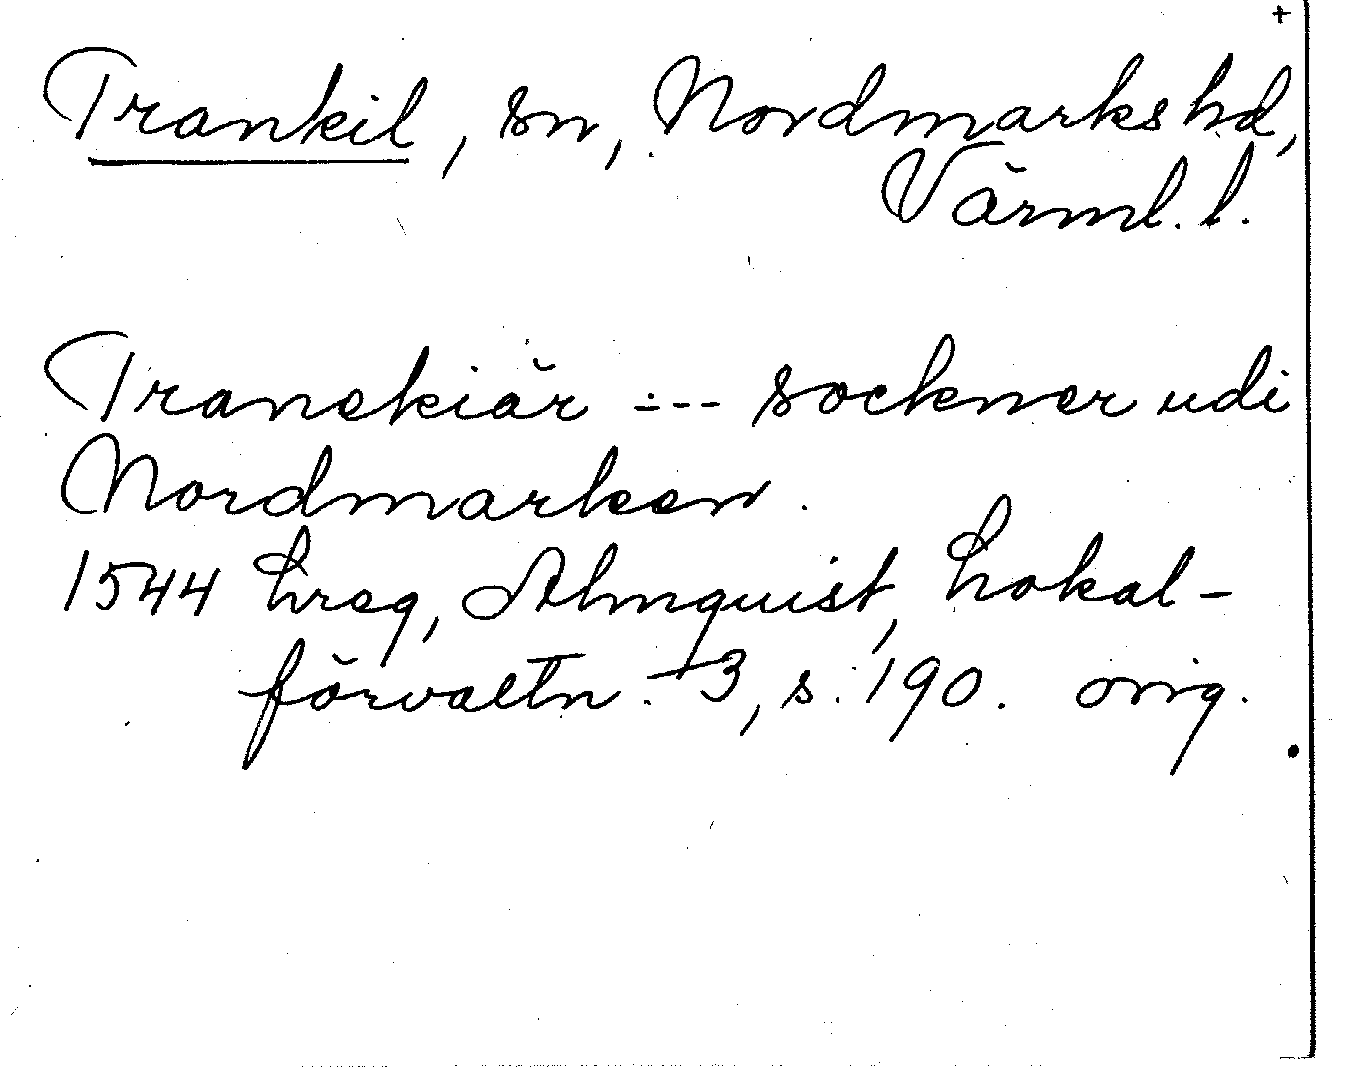 +
Trankil, sn, Nordmarks hd,
Värml. l.
Tranekiär --- sockner udi
Nordmarken.
1544 Lreg, Almquist, Lokal-
förvaltn. 3, s. 190. orig.